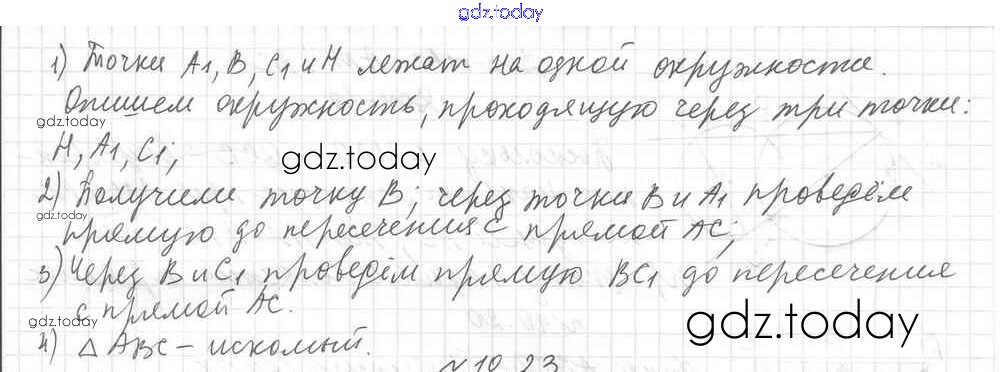 gdz.today
1) Точки A1, B, C1 и H лежат на одной окружности.
Опишем окружность, проходящую через три точки:
gdz.today
H, A1, C1;
gdz.today
2) Получили точку B; через точки B и A1 проведём
gdz.today
прямую до пересечения с прямой AC;
3) Через B и C1 проведём прямую BC1 до пересечения
с прямой AC.
gdz.today
gdz.today
4) △ABC – искомый.
N10.23